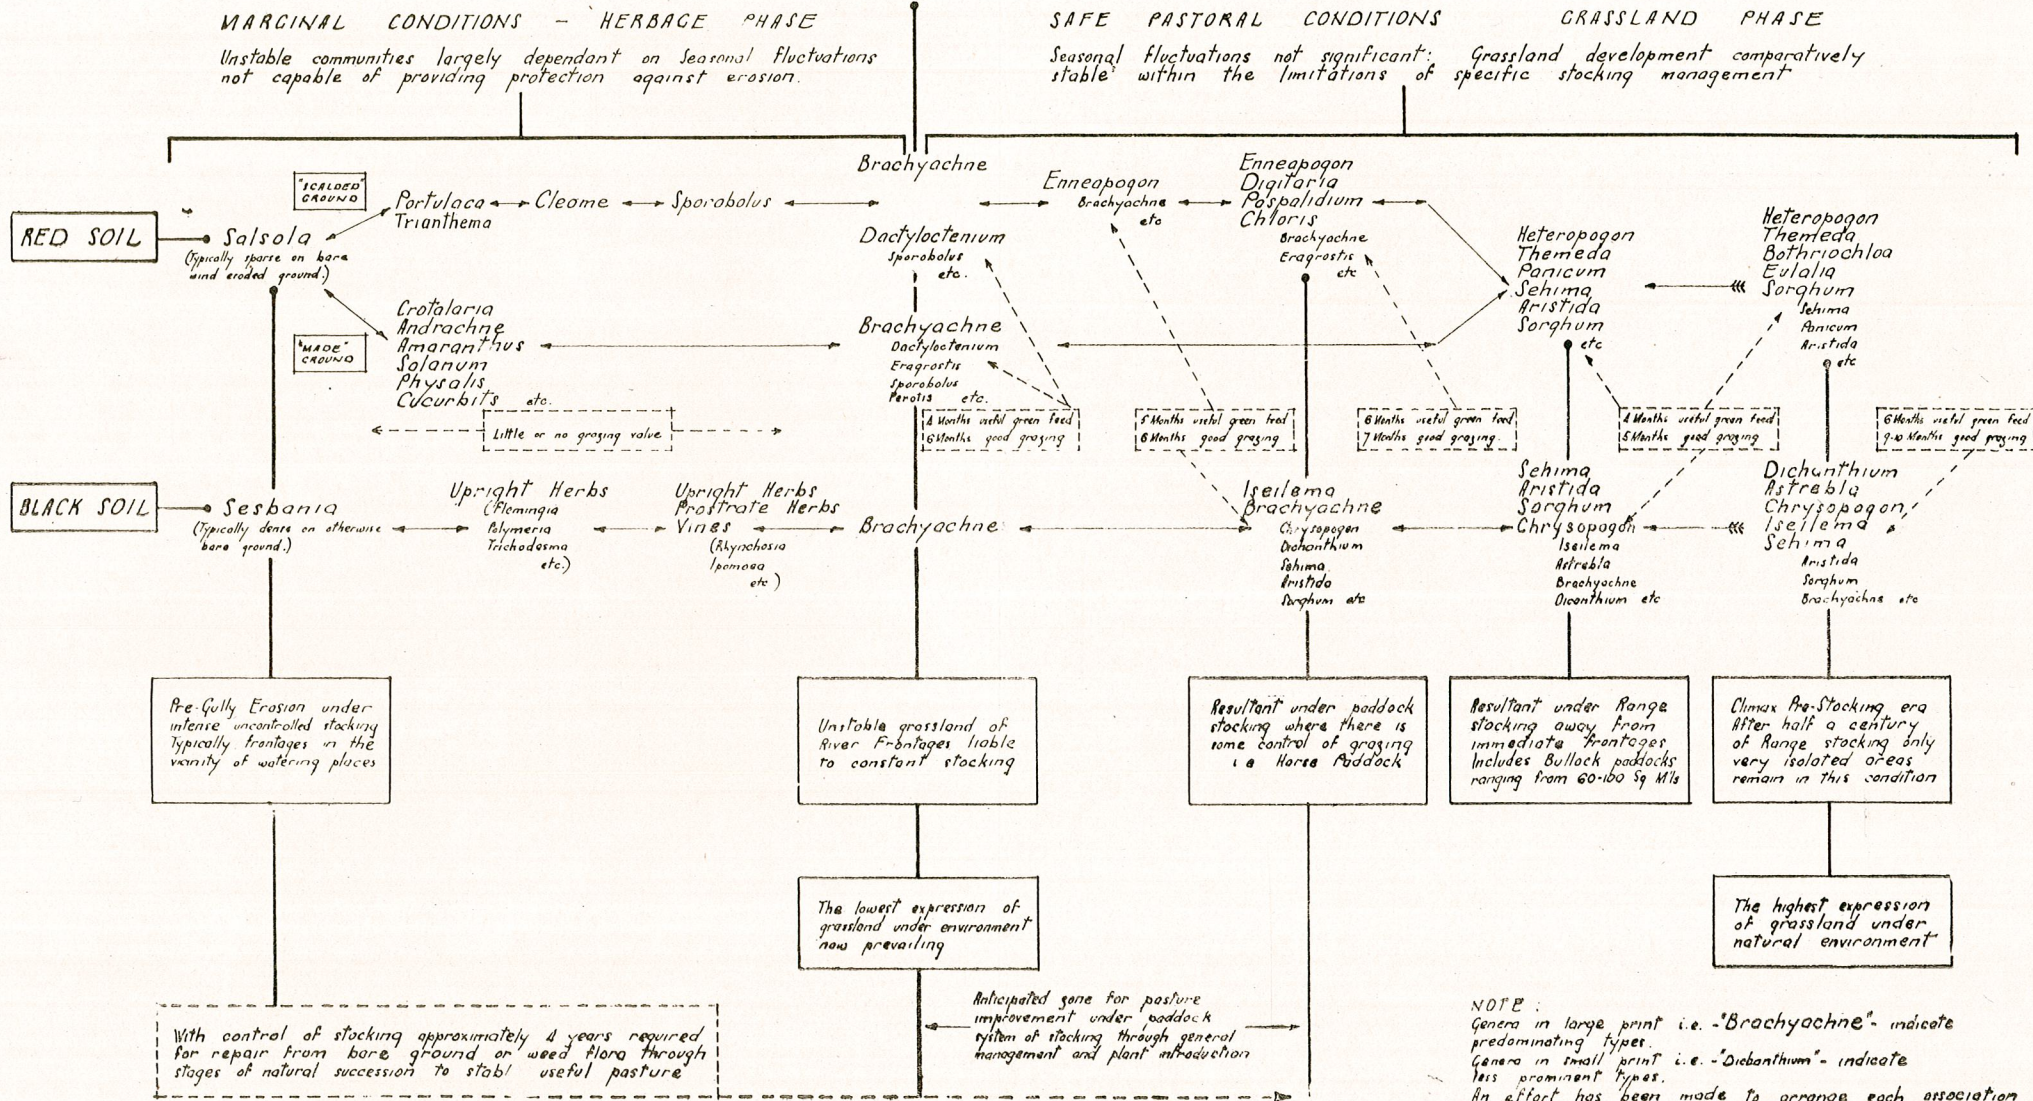 MARGINAL CONDITIONS - HERBAGE PHASE
Unstable communities largely dependant on Seasonal fluctuations
not capable of providing protection against erosion.
SAFE PASTORAL CONDITIONS GRASSLAND PHASE
Seasonal fluctuations not significant: Grassland development comparatively
stable within the limitations of specific stocking management
RED SOIL
Salsola
(Typically sparse on bare
wind eroded ground.)
"SCALDED"
GROUND
Portulaca
Trianthema
Cleome
Sporobolus
"MADE"
GROUND
Crotalaria
Andrachne
Amaranthus
Solanum
Physalis
Cucurbits etc.
Brachyachne
Dactyloctenium
Sporobolus
etc.
Brachyachne
Dactyloctenium
Eragrostis
Sporobolus
Perotis etc.
Enneapogon
Brachyachne
etc
Enneapogon
Digitaria
Paspalidium
Chloris
Brachyachne
Eragrostis
etc
Heteropogon
Themeda
Panicum
Sehima
Aristida
Sorghum
etc
Heteropogon
Themeda
Bothriochloa
Eulalia
Sorghum
Sehima
Panicum
Aristida
etc
Little or no grazing value
4 Months useful green feed
6 Months good grazing
5 Months useful green feed
6 Months good grazing
6 Months useful green feed
7 Months good grazing.
4 Months useful green feed
5 Months good grazing
6 Months useful green feed
9-10 Months good grazing
BLACK SOIL
Sesbania
(Typically dense on otherwise
bare ground.)
Upright Herbs
(Flemingia
Polymeria
Trichodesma
etc.)
Upright Herbs
Prostrate Herbs
Vines
(Rhynchosia
Ipomoea
etc)
Brachyachne
Iseilema
Brachyachne
Chrysopogon
Dichanthium
Sehima
Aristida
Sorghum etc
Sehima
Aristida
Sorghum
Chrysopogon
Iseilema
Astrebla
Brachyachne
Dicanthium etc
Dichanthium
Astrebla
Chrysopogon
Iseilema
Sehima
Aristida
Sorghum
Brachyachne etc
Pre-Gully Erosion under
intense uncontrolled stocking
Typically frontages in the
vicinity of watering places
Unstable grassland of
River Frontages liable
to constant stocking
Resultant under paddock
stocking where there is
some control of grazing
i e Horse Paddock
Resultant under Range
stocking away from
immediate frontages
Includes Bullock paddocks
ranging from 60-100 Sq Mls
Climax Pre-Stocking era
After half a century
of Range stocking only
very isolated areas
remain in this condition
The lowest expression of
grassland under environment
now prevailing
The highest expression
of grassland under
natural environment
With control of stocking approximately 4 years required
for repair from bare ground or weed flora through
stages of natural succession to stabl useful pasture
Anticipated zone for pasture
improvement under paddock
system of stocking through general
management and plant introduction
NOTE :
Genera in large print i.e. -"Brachyachne"- indicate
predominating types.
Genera in small print i.e. -"Dichanthium"- indicate
less prominent types.
An effort has been made to arrange each association